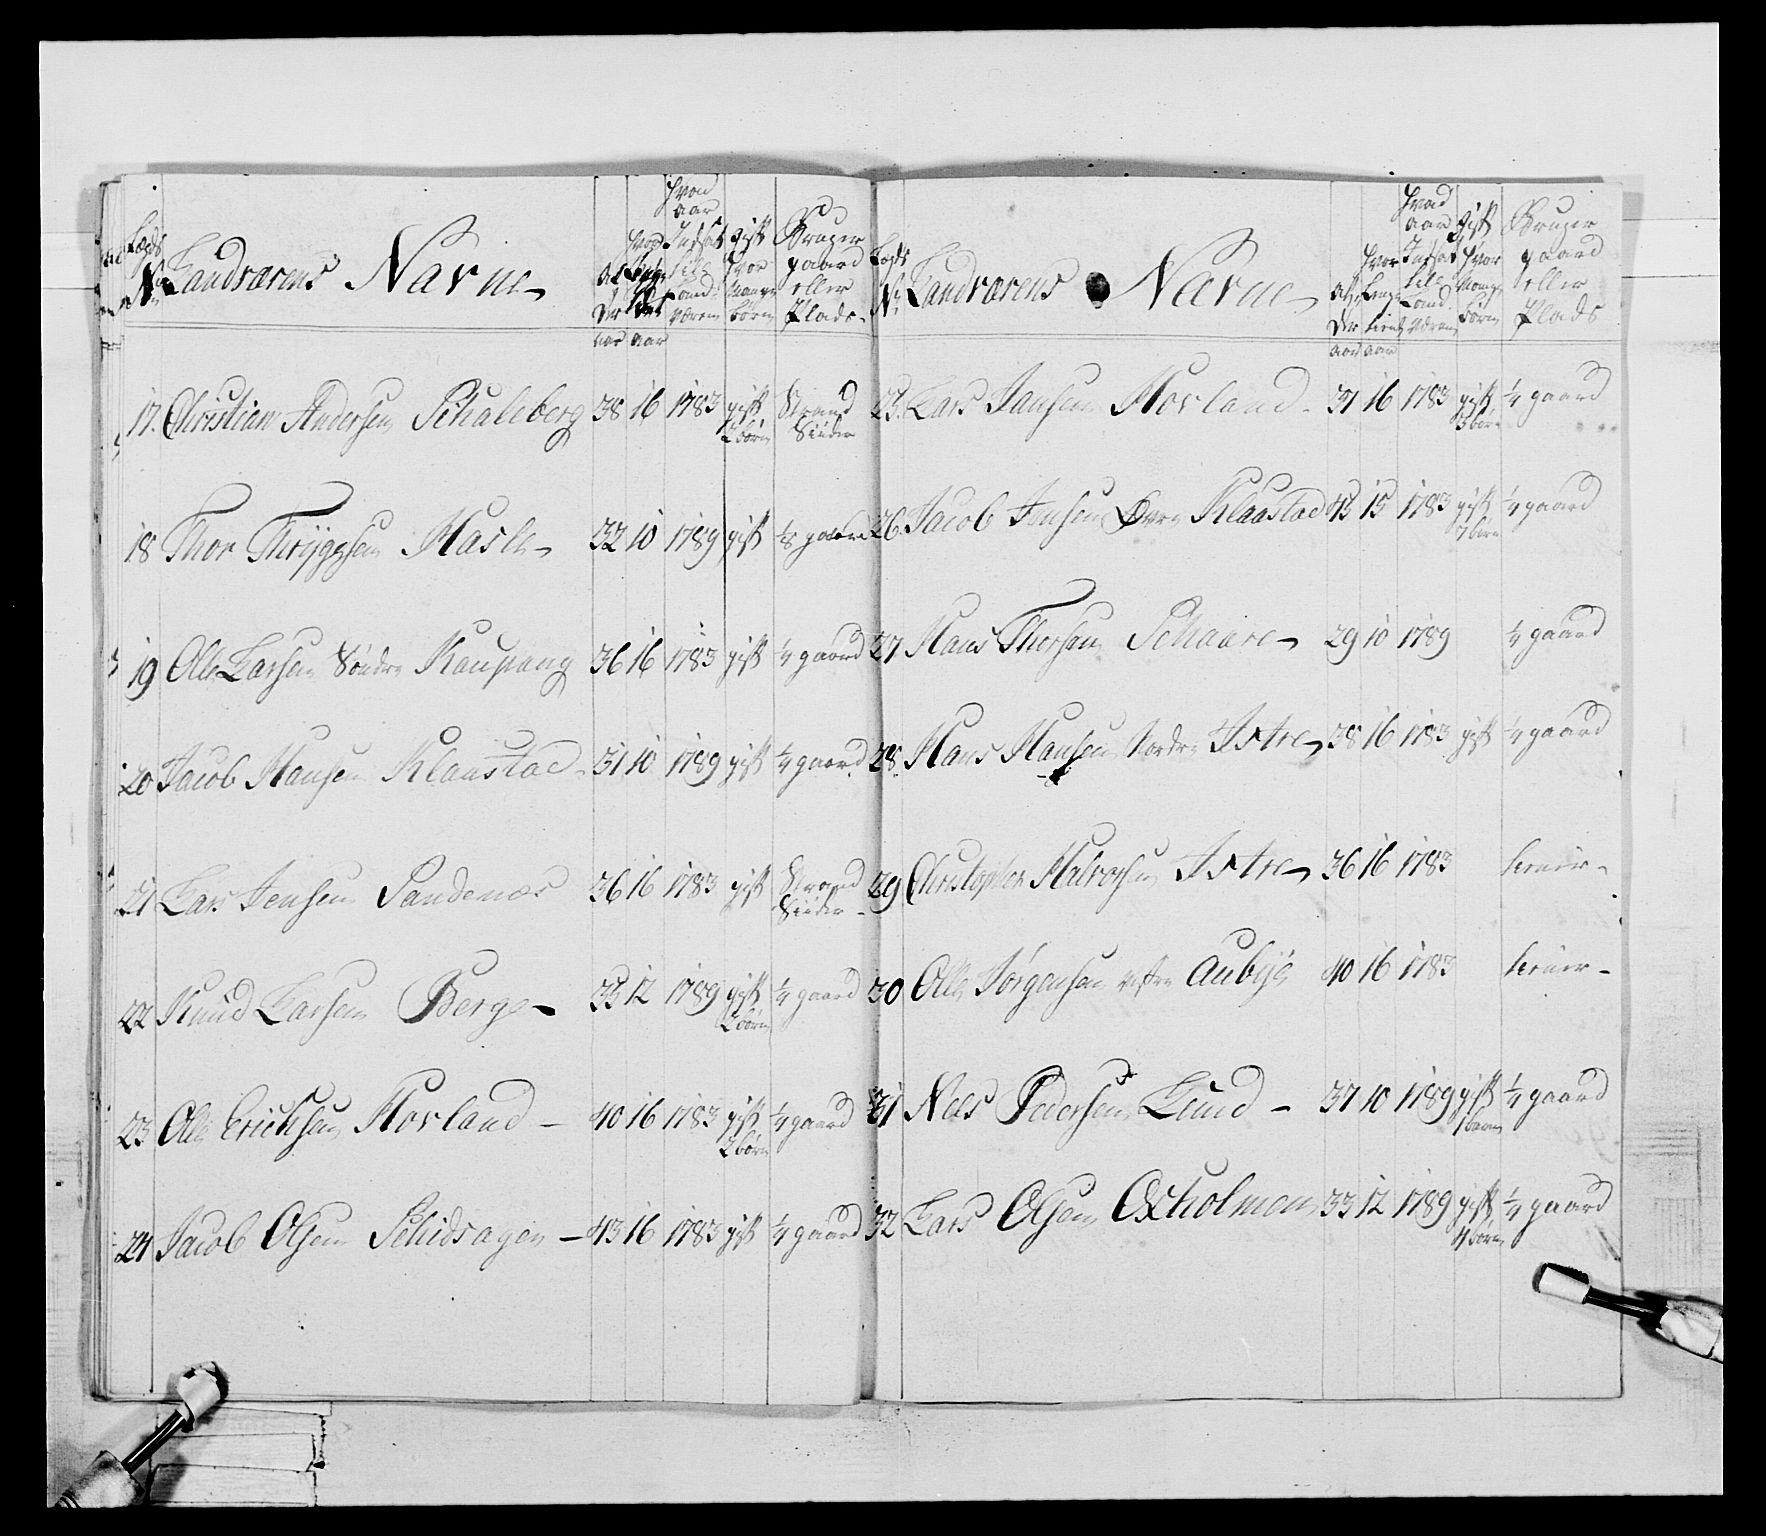 Lægds No Landværens Navne
Al der aar
Hvor Lenge tient aar
Hvad aar Indsat till Land Værene
Gift Hvor Mange børn
Bruger gaard eller Plads
17. Christian Andersen Schaleberg 38 16 1783 gift 2 børn Strand Siider
18 Thor Thrÿggsen Hasle 32 10 1789 gift 1/8 gaard
19 Olle Larsen Söndre Kaupang 36 16 1783 gift 1/4 gaard
20 Jacob Hansen Klaastad 31 10 1789 gift 1/4 gaard
21 Lars Jensen Sandenæs 36 16 1783 gift Strand Siider
22 Knud Larsen Berge 35 12 1789 gift 2 børn 1/4 gaard
23 Olle Erichsen Hovland 40 16 1783 gift 2 børn 1/4 gaard
24 Jacob Olsen Schidsagen 43 16 1783 gift 1/4 gaard
Lægds No Landværens Navne
Al der aar
Hvor Lenge tient aar
Hvad aar Indsat till Land Værene
Gift Hvor Mange børn
Bruger gaard eller Plads
25. Lars Jansen Hovland 37 16 1783 gift 3 børn 1/4 gaard
26. Jacob Jensen Øvre Klaastad 43 15 1783 gift 7 børn 1/4 gaard
27 Hans Thorsen Schaare 29 10 1789 1/4 gaard
28. Hans Hansen Nordre Istre 38 16 1783 gift 1/4 gaard
29 Christopher Halvorsen Istre 36 16 1783
30 Olle Jörgensen vestre Aubÿe 40 16 1783
31 Niels Pedersen Lund 37 10 1789 gift 1 barn 1/4 gaard
32 Lars Olsen Oxholmen 33 12 1789 gift 4 børn 1/4 gaard